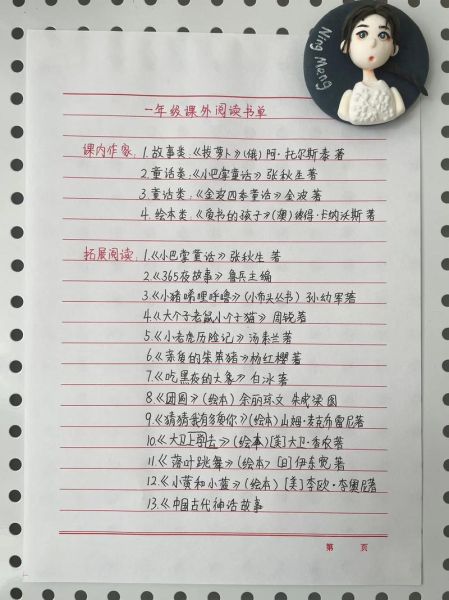 Ning Meng
一年级课外阅读书单
课内作家 1.故事类.《拔萝卜》(俄)阿·托尔斯泰著
2.童话类《小巴掌童话》张秋生著
3.童话类:《金波四季童话》金波著
4.绘本类.《爱书的孩子》(澳)彼得·卡纳沃斯著
拓展阅读. 1.《小巴掌童话》张秋生著
2.《365夜故事》鲁兵主编
3.《小猪唏哩呼噜》(小布头丛书)孙幼军著
4.《大个子老鼠小个子猫》周锐著
5.《小老虎历险记》汤素兰著
6.《亲爱的笨笨猪》杨红樱著
7.《吃黑夜的大象》白冰著
8.《团圆》(绘本)余丽琼文 朱成梁图
9.《猜猜我有多爱你》(绘本)山姆·麦克布雷尼著
10.《大卫上学去》(绘本)[美]大卫·香农著
11.《落叶跳舞》(绘本)[日]伊东宽著
12.《小黄和小黄》(绘本)[美]李欧·李奥尼著
13.《中国古代神话故事
第 页